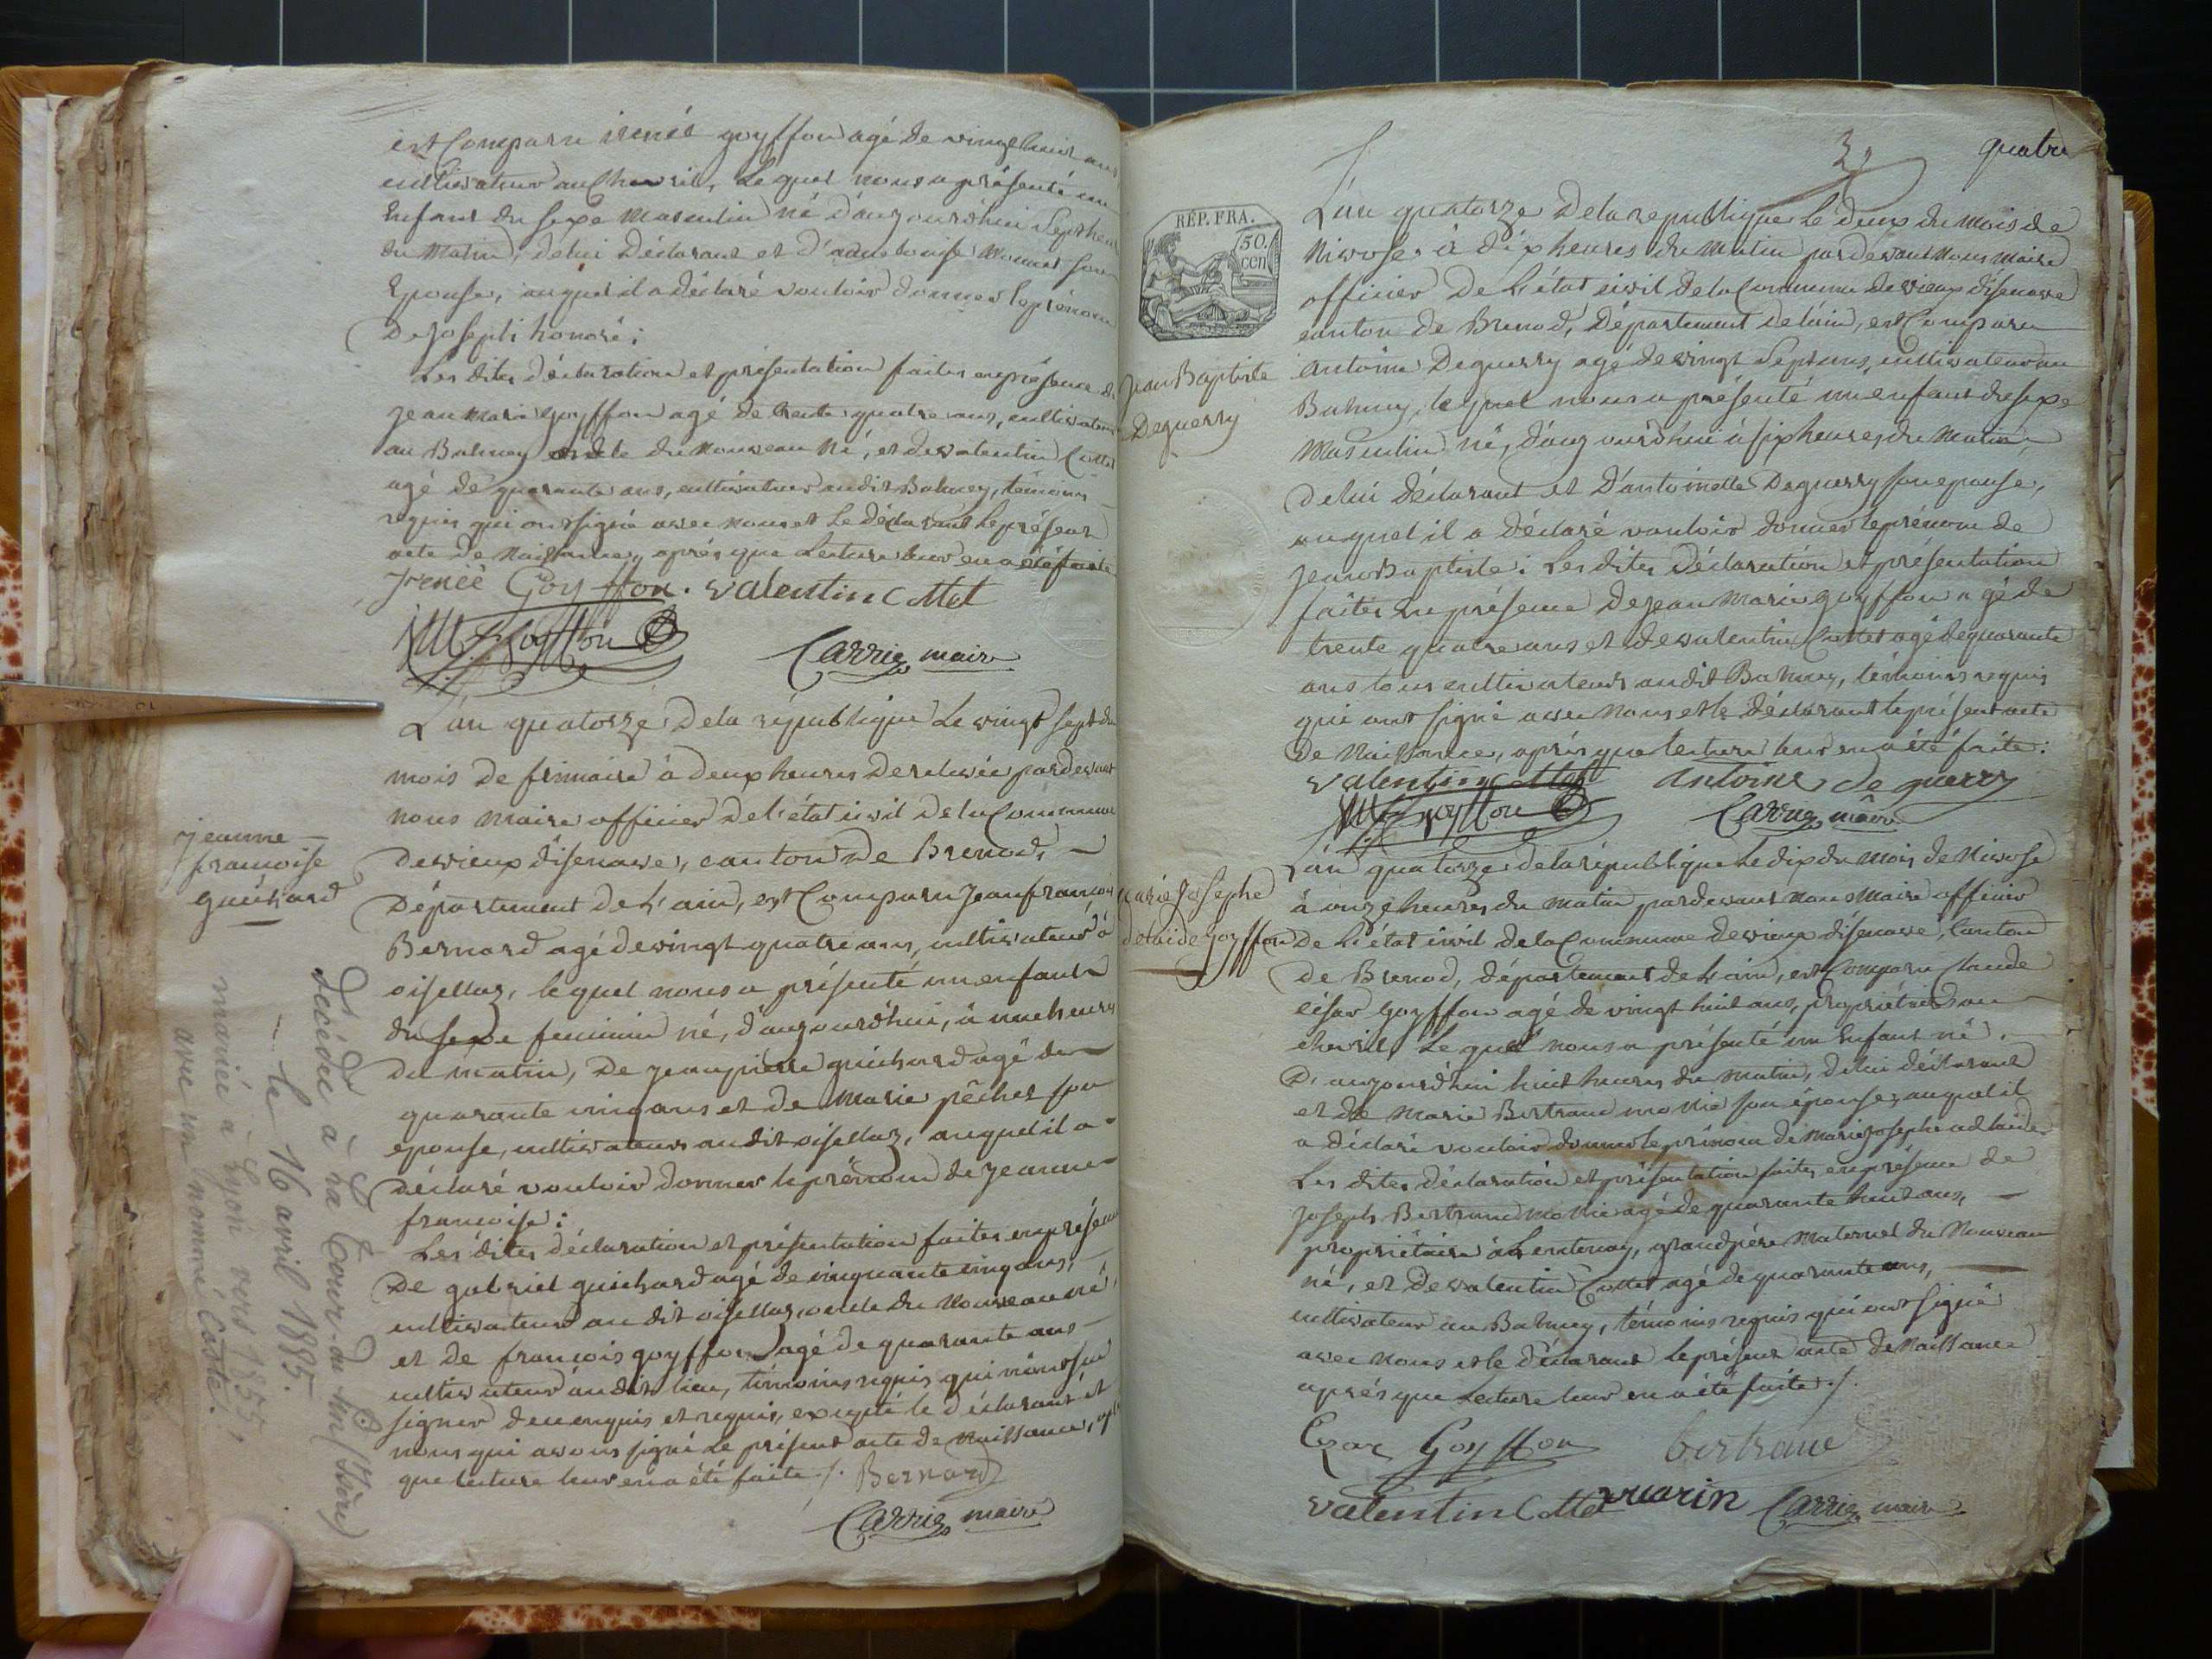 est Comparu irenée goyffon agé de vingt huit ans
cultivateur au Chevril, Lequel nous a présenté un
Enfant du sexe Masculin né d'aujourd'hui sept heures
du Matin, de lui Déclarant et d' Monnet son
Epouse, auquel il a Déclaré vouloir donner le prénom
De joseph honoré;
Les dites déclaration et présentation faites en présence de
jean Marie goyffon agé de trente quatre ans, cultivateur
au Balmey oncle du Nouveau Né, et de valentin Cottet
agé de quarante ans, cultivateur audit Balmey, témoins
requis qui ont signé avec nous et Le déclarant Le présent
acte de Naissance, aprés que Lecture leur en a été faite
Jrenée Goyffon. valentin Cottet
JM Goyffon
Carrier maire
L'an quatorze De la république Le vingt sept du
mois de frimaire à deux heures de relevée pardevant
nous Maire officier De l'état civil De la Commune
De vieux d'isenave, canton De Brenod,
Département De L'ain, est Comparu Jean françois
Bernard agé de vingt quatre ans, cultivateur à
oisellaz, lequel nous a présenté un enfant
du sexe feminin né, d'aujourd'hui, à une heure
du matin, De jean pierre guichard agé de
quarante cinq ans et de Marie péchet son
epouse, cultivateurs audit oisellaz, auquel il a
Déclaré vouloir donner le prénom de jeanne
francoise:
Les dites déclaration et présentation faites en présence
De gabriel guichard agé de cinquante cinq ans,
cultivateur au dit oisellaz, oncle du Nouveau né,
et de francois goyffon agé de quarante ans
cultivateur audit lieu, témoins requis qui n'ont su
signer de ce enquis et requis, excepté le déclarant et
nous qui avons signé Le présent acte de Naissance, après
que lecture leur en a été faite ./. Bernard
Carrier maire
jeanne
francoise
guichard
Décédée à La Tour-du-Pin (Isère)
le 16 avril 1885.
mariée à Lyon vers 1855,
avec un nommé Coste.
3
quatre
RÉP. FRA.
50.
cen
L'an quatorze De la republique Le deux du Mois de
Nivose à dix heures du Matin pardevant Nous Maire
officier De L'état civil de la Commune de vieux d'isenave
canton de Brenod, Département de l'ain, est Comparu
antoine Deguerry agé de vingt sept ans, cultivateur au
Balmey, lequel nous a présenté un enfant du sexe
Masculin né, d'aujourd'hui à six heures du Matin,
De lui déclarant et D'antoinette Deguerry son epouse,
auquel il a déclaré vouloir donner le prénom de
jean Baptiste: Les dites Déclaration et présentation
faites en présence De jean Marie goyffon agé de
trente quatre ans et de valentin Cottet agé de quarante
ans tous cultivateurs audit Balmey, témoins requis
qui ont signé avec Nous et le déclarant le présent acte
de Naissance, aprés que lecture leur en a été faite:
valentin Cottet antoine de guerry
JM Goyffon
Carrier maire
Jean Baptiste
Deguerry
L'an quatorze de la république Le dix du Mois de Nivose
à onze heures du matin pardevant Nous Maire officier
De L'état civil de la Commune de vieux d'isenave, Canton
de Brenod, département de L'ain, est Comparu Claude
César goyffon agé de vingt huit ans, propriétaire au
chevril, Lequel nous a présenté un Enfant né
D'aujourd'hui huit heures du Matin, de lui déclarant
et de Marie Bertrand mollie son épouse, auquel il
a déclaré vouloir donner le prénom de Marie josephe adelaide
Les dites déclaration et présentation faites en présence de
joseph Bertrand mollie agé de quarante huit ans,
propriétaire à Lentenay, grand père Maternel du Nouveau
né, et De valentin Cottet agé de quarante ans,
cultivateur au Balmey, témoins requis qui ont signé
avec nous et le déclarant le présent acte de Naissance
aprés que Lecture leur en a été faite ./.
Marie Josephe
adelaide goyffon
Cezar Goyffon bertrand
valentin Cottet Carrier maire